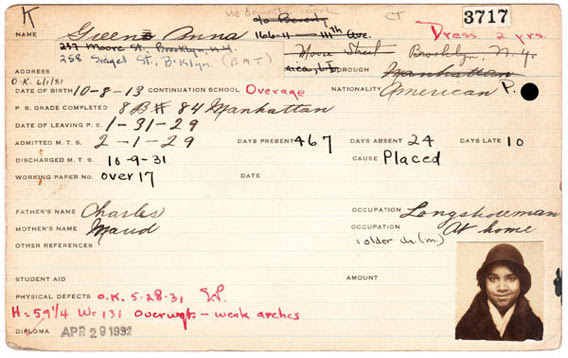 K no domestic work CT 3717
NAME Greene Anna c/o Beverly 166-11-111th Ave. Dress 2 yrs.
237 Moore St., Brooklyn, N.Y. Moore Street Brooklyn, N.Y.
258 Siegel St., B'klyn
ADDRESS BOROUGH Manhattan
O.K. 6/1/31
DATE OF BIRTH 10-8-13 CONTINUATION SCHOOL Overage NATIONALITY American P.
P. S. GRADE COMPLETED 8B # 84 Manhattan
DATE OF LEAVING P. S. 1-31-29
ADMITTED M. T. S. 2-1-29 DAYS PRESENT 467 DAYS ABSENT 24 DAYS LATE 10
DISCHARGED M. T. S. 10-9-31 CAUSE Placed
WORKING PAPER No. over 17 DATE
FATHER'S NAME Charles OCCUPATION Longshoreman
MOTHER'S NAME Maud OCCUPATION At home
OTHER REFERENCES 1 older ch. (m)
STUDENT AID AMOUNT
PHYSICAL DEFECTS O.K. 5-28-31
H=59 1/4 W=131 Overwgt. - weak arches
DIPLOMA APR 29 1932